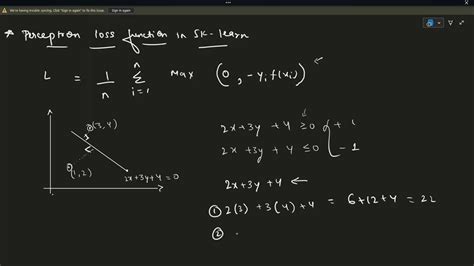 We're having trouble syncing. Click "Sign in again" to fix this issue. Sign in again
* Perceptron loss function in SK-learn
L = 1/n n∑i=1 Max (0, -yi f(xi))
(3,4)
(1,2)
2x+3y+4=0
2x+3y+4 ≥0 } +1
2x+3y+4 ≤0 } -1
2x+3y+4 ←
① 2(3) + 3(4) + 4 = 6+12+4 = 22
②